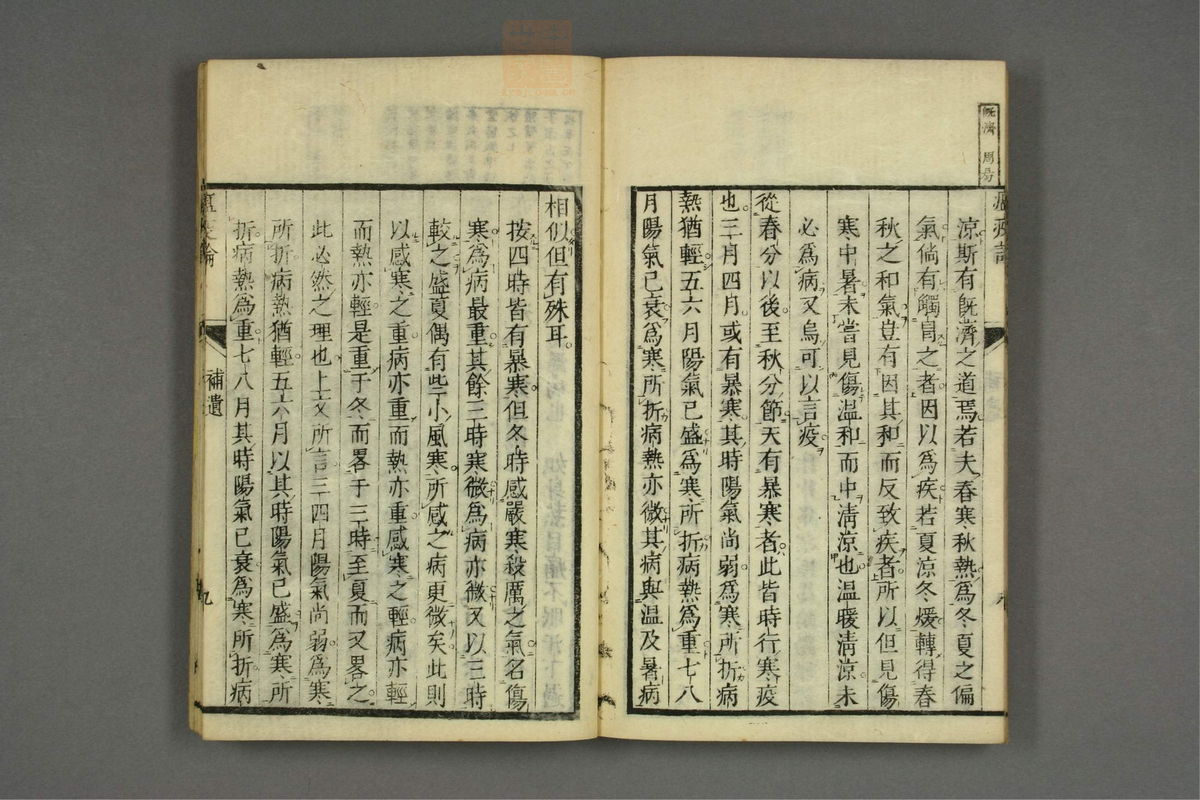 既濟 周易
涼斯有既濟之道焉若夫春寒秋熱爲冬夏之偏
氣倘有觸冐之者因以爲疾若夏涼冬煖轉得春
秋之和氣豈有因其和而反致疾者所以但見傷
寒中暑未嘗見傷温和而中清涼也温暖清涼未
必爲病又烏可以言疫
從春分以後至秋分節天有暴寒者此皆時行寒疫
也三月四月或有暴寒其時陽氣尚弱爲寒所折病
熱猶輕五六月陽氣已盛爲寒所折病熱爲重七八
月陽氣已衰爲寒所折病熱亦微其病與温及暑病
相似但有殊耳
按四時皆有暴寒但冬時感嚴寒殺厲之氣名傷
寒爲病最重其餘三時寒微爲病亦微又以三時
較之盛夏偶有些小風寒所感之病更微矣此則
以感寒之重病亦重而熱亦重感寒之輕病亦輕
而熱亦輕是重于冬而畧于三時至夏而又畧之
此必然之理也上文所言三四月陽氣尚弱爲寒
所折病熱猶輕五六月以其時陽氣已盛爲寒所
折病熱爲重七八月其時陽氣已衰爲寒所折病
補遺
九